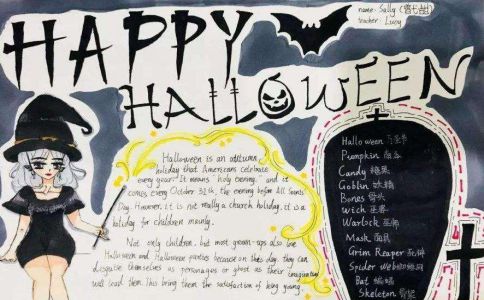 HAPPY
HALLOWEEN
name: Sally
teacher: Lucy
Halloween is an autumn
holiday that Americans celebrate
every year. It means "holy evening," and it
comes every October 31st, the evening before All Saints'
Day. However, it is not really a church holiday, it is a
holiday for children mainly.
Not only children, but most grown-ups also love
Halloween and Halloween parties because on this day, they can
disguise themselves as personages or ghost as their imagination
will lead them. This bring them the satisfaction of being young
Halloween 万圣节
Pumpkin 南瓜
Candy 糖果
Goblin 妖精
Bones 骨头
Wich 巫婆
Warlock 巫师
Mask 面具
Grim Reaper 死神
Spider web 蜘蛛网
Bat 蝙蝠
Skeleton 骨架